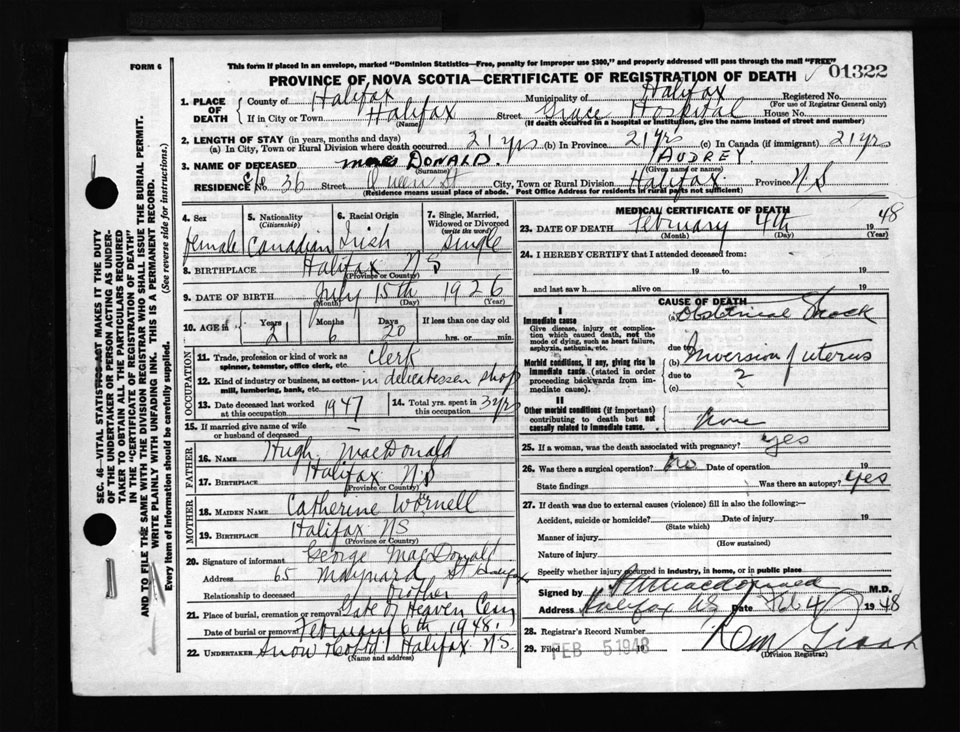 FORM 6
This form if placed in an envelope, marked "Dominion Statistics—Free, penalty for improper use $300," and properly addressed will pass through the mail "FREE"
PROVINCE OF NOVA SCOTIA—CERTIFICATE OF REGISTRATION OF DEATH
01322
SEC. 46—VITAL STATISTICS ACT MAKES IT THE DUTY
OF THE UNDERTAKER OR PERSON ACTING AS UNDER-
TAKER TO OBTAIN ALL THE PARTICULARS REQUIRED
IN THE "CERTIFICATE OF REGISTRATION OF DEATH"
AND TO FILE THE SAME WITH THE DIVISION REGISTRAR WHO SHALL ISSUE THE BURIAL PERMIT.
WRITE PLAINLY WITH UNFADING INK. THIS IS A PERMANENT RECORD.
Every item of information should be carefully supplied. (See reverse side for instructions.)
1. PLACE OF DEATH
County of Halifax Municipality of Halifax Registered No.
(For use of Registrar General only)
If in City or Town Halifax Street Grace Hospital House No.
(Name) (If death occurred in a hospital or institution, give the name instead of street and number)
2. LENGTH OF STAY (in years, months and days)
(a) In City, Town or Rural Division where death occurred 21 yrs (b) In Province 21 yrs (c) In Canada (if immigrant) 21 yrs
3. NAME OF DECEASED DONALD. AUDREY.
(Surname) (Given name or names)
RESIDENCE No. 36 Street Queen St City, Town or Rural Division Halifax Province NS
(Residence means usual place of abode. Post Office Address for residents in rural parts not sufficient)
4. Sex
female
5. Nationality
(Citizenship)
Canadian
6. Racial Origin
Irish
7. Single, Married,
Widowed or Divorced
(write the word)
single
8. BIRTHPLACE Halifax NS
(Province or Country)
9. DATE OF BIRTH July 15th 1926
(Month) (Day) (Year)
10. AGE in Years Months Days If less than one day old
21 6 20 hrs. or min.
OCCUPATION
11. Trade, profession or kind of work as
spinner, teamster, office clerk, etc. Clerk
12. Kind of industry or business, as cotton-
mill, lumbering, bank, etc. in delicatessen shop
13. Date deceased last worked
at this occupation 1947
14. Total yrs. spent in
this occupation 3 yrs
15. If married give name of wife
or husband of deceased —
FATHER
16. NAME Hugh MacDonald
17. BIRTHPLACE Halifax NS
(Province or Country)
MOTHER
18. MAIDEN NAME Catherine Wornell
19. BIRTHPLACE Halifax NS
(Province or Country)
20. Signature of informant George MacDonald
Address 65 Maynard St Halifax
Relationship to deceased brother
21. Place of burial, cremation or removal Gate of Heaven Cem
Date of burial or removal February 6th 1948.
22. UNDERTAKER Snow & Co Ltd Halifax N.S.
(Name and address)
MEDICAL CERTIFICATE OF DEATH
23. DATE OF DEATH February 4th 1948
(Month) (Day) (Year)
24. I HEREBY CERTIFY that I attended deceased from:
19 to 19
and last saw h alive on 19
CAUSE OF DEATH
I
Immediate cause
Give disease, injury or complica-
tion which caused death, not the
mode of dying, such as heart failure,
asphyxia, asthenia, etc.
(a) Obstetrical Shock
due to
Morbid conditions, if any, giving rise to
immediate cause (stated in order
proceeding backwards from im-
mediate cause).
(b) Inversion of uterus
due to ?
(c)
II
Other morbid conditions (if important)
contributing to death but not
causally related to immediate cause.
None
25. If a woman, was the death associated with pregnancy? yes
26. Was there a surgical operation? no Date of operation 19
State findings Was there an autopsy? yes
27. If death was due to external causes (violence) fill in also the following:—
Accident, suicide or homicide? Date of injury 19
(State which)
Manner of injury
(How sustained)
Nature of injury
Specify whether injury occurred in industry, in home, or in public place
Signed by M.D.
Address Halifax NS Date Feb 4 1948
28. Registrar's Record Number
29. Filed FEB 5 1948 19
(Division Registrar)